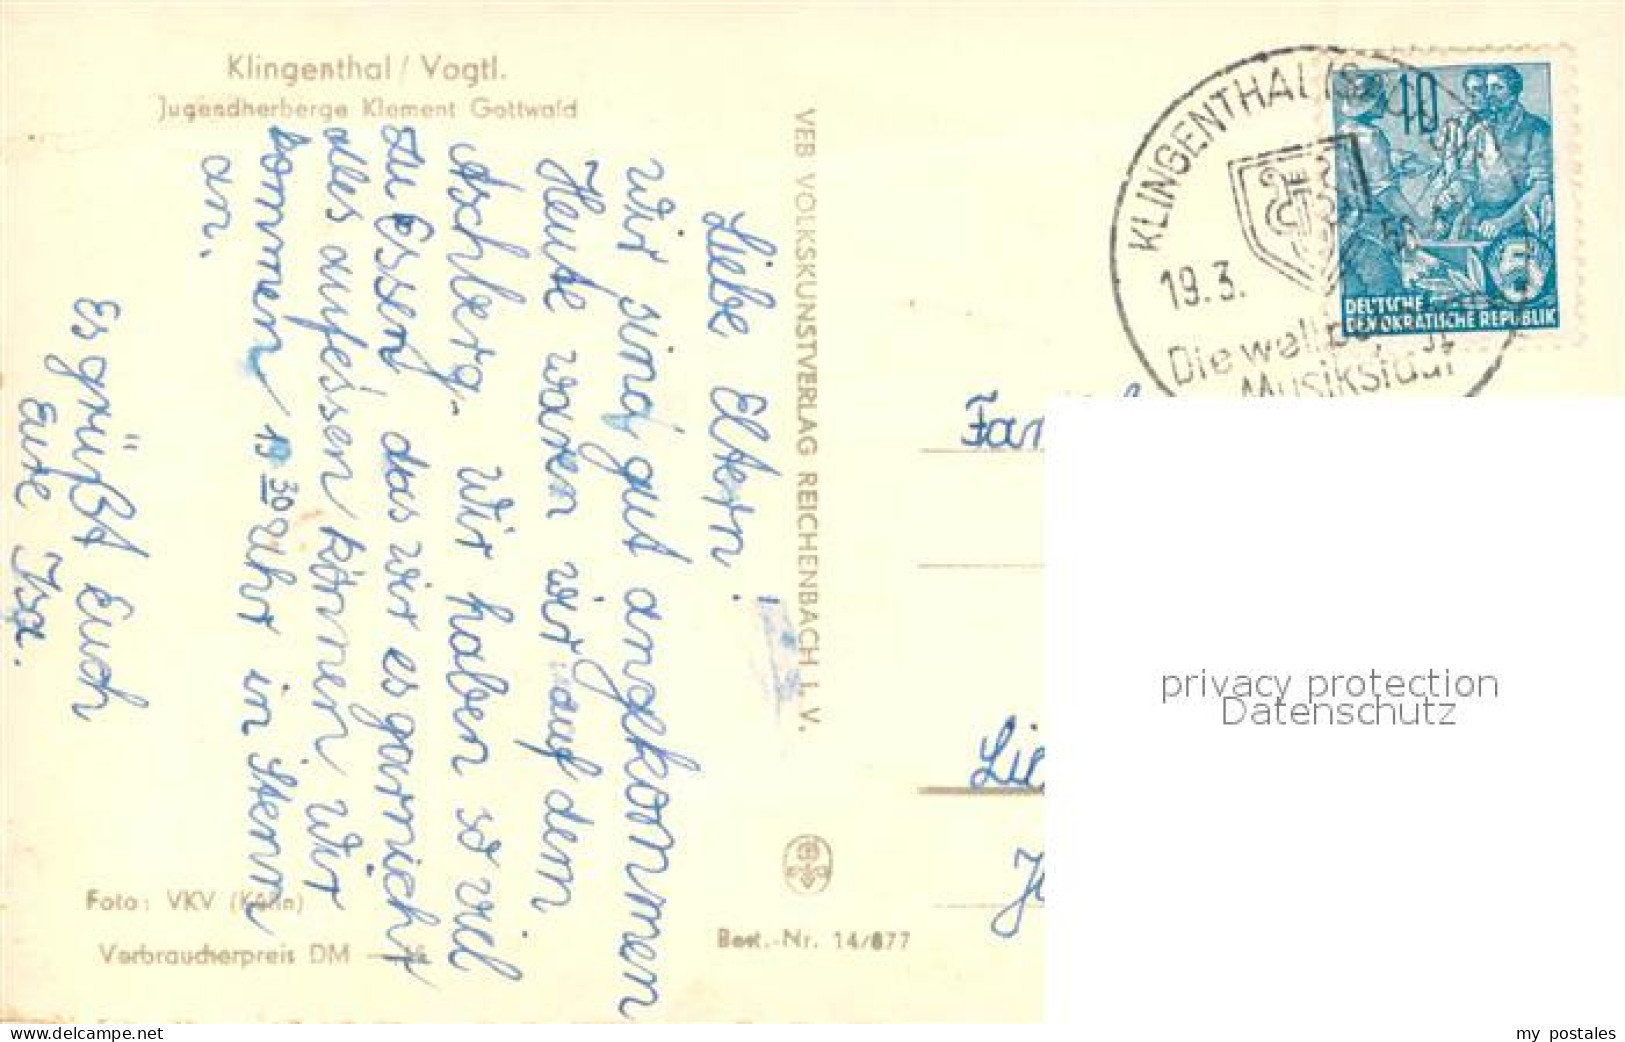 Klingenthal / Vogtl.
Jugendherberge Klement Gottwald
Liebe Eltern!
Wir sind gut angekommen
Heute waren wir auf dem
Aschberg. Wir haben so viel
zu Essen das wir es garnicht
alles aufessen können Wir
kommen 19 30 Uhr in Stenn
an.
Es grüßt Euch
Eure Isa.
Foto: VKV (Kölln)
Verbraucherpreis DM
VEB VOLKSKUNSTVERLAG REICHENBACH I. V.
Best.-Nr. 14/877
KLINGENTHAL (Sachsen)
19.3.
Die
Musikstadt
10
5
DEUTSCHE
DEMOKRATISCHE REPUBLIK
Fam
privacy protection
Datenschutz
www.oldthing.com
my postales